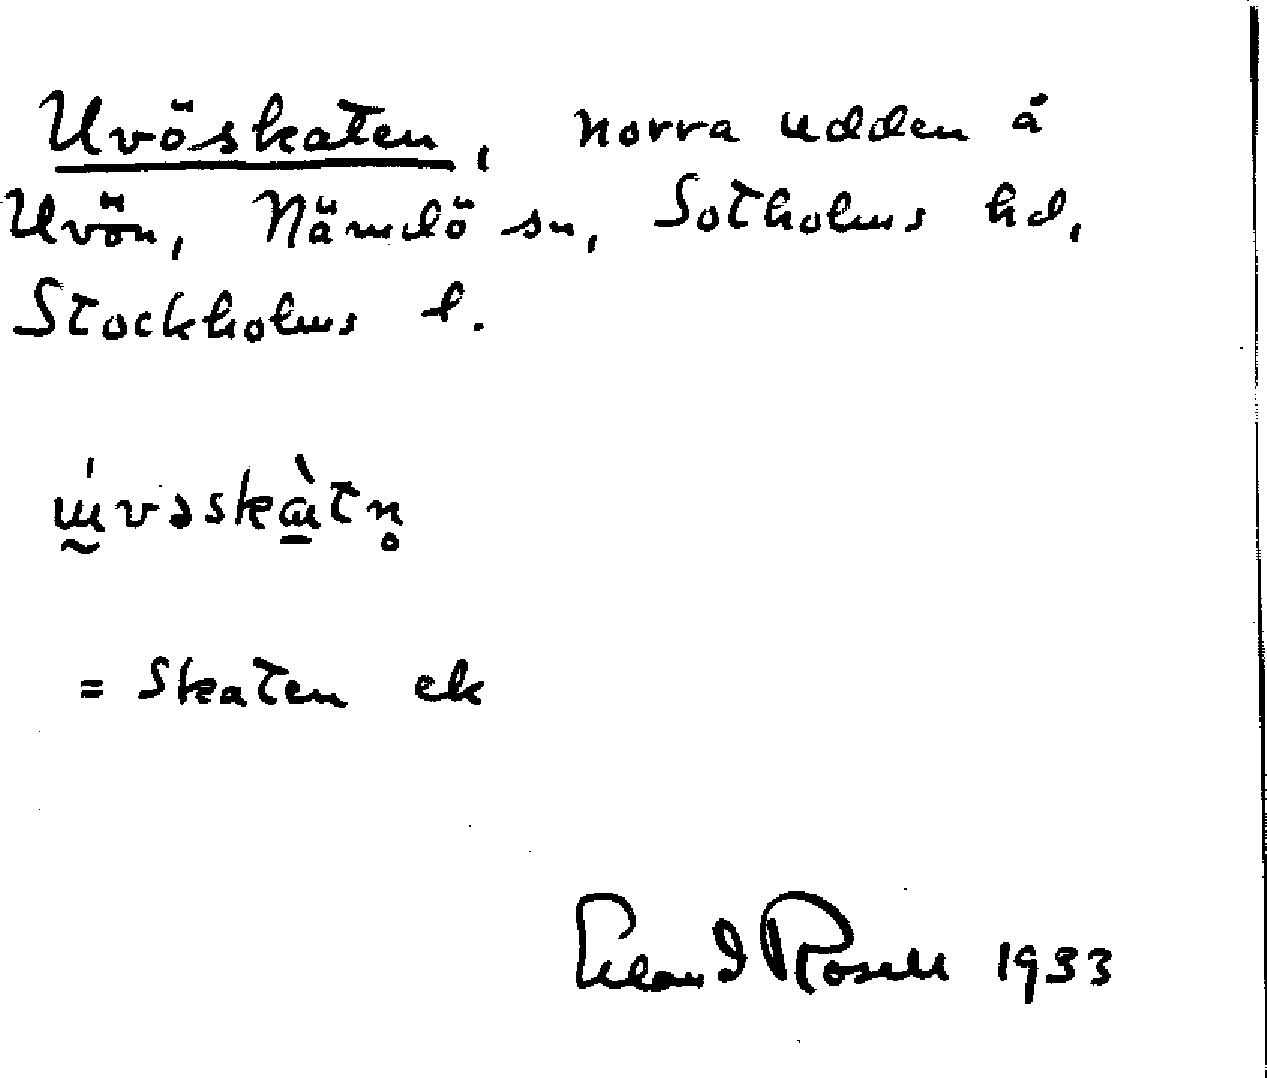 Uvöskaten, norra udden å
Uvön, Nämdö sn, Sotholms hd,
Stockholms l.
ɯ̰́vəskɑ̠̀tn̥
= Skaten ek
Erland Rosell 1933